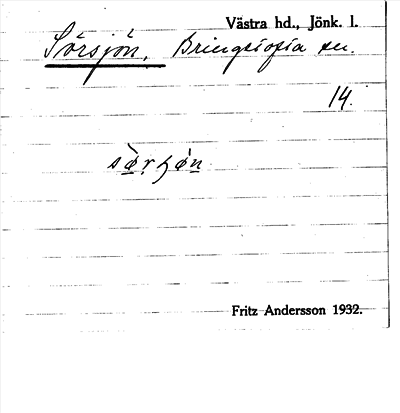 Västra hd., Jönk. l.
Sörsjön, Bringetofta sn.
14.
sørɧøn
Fritz Andersson 1932.